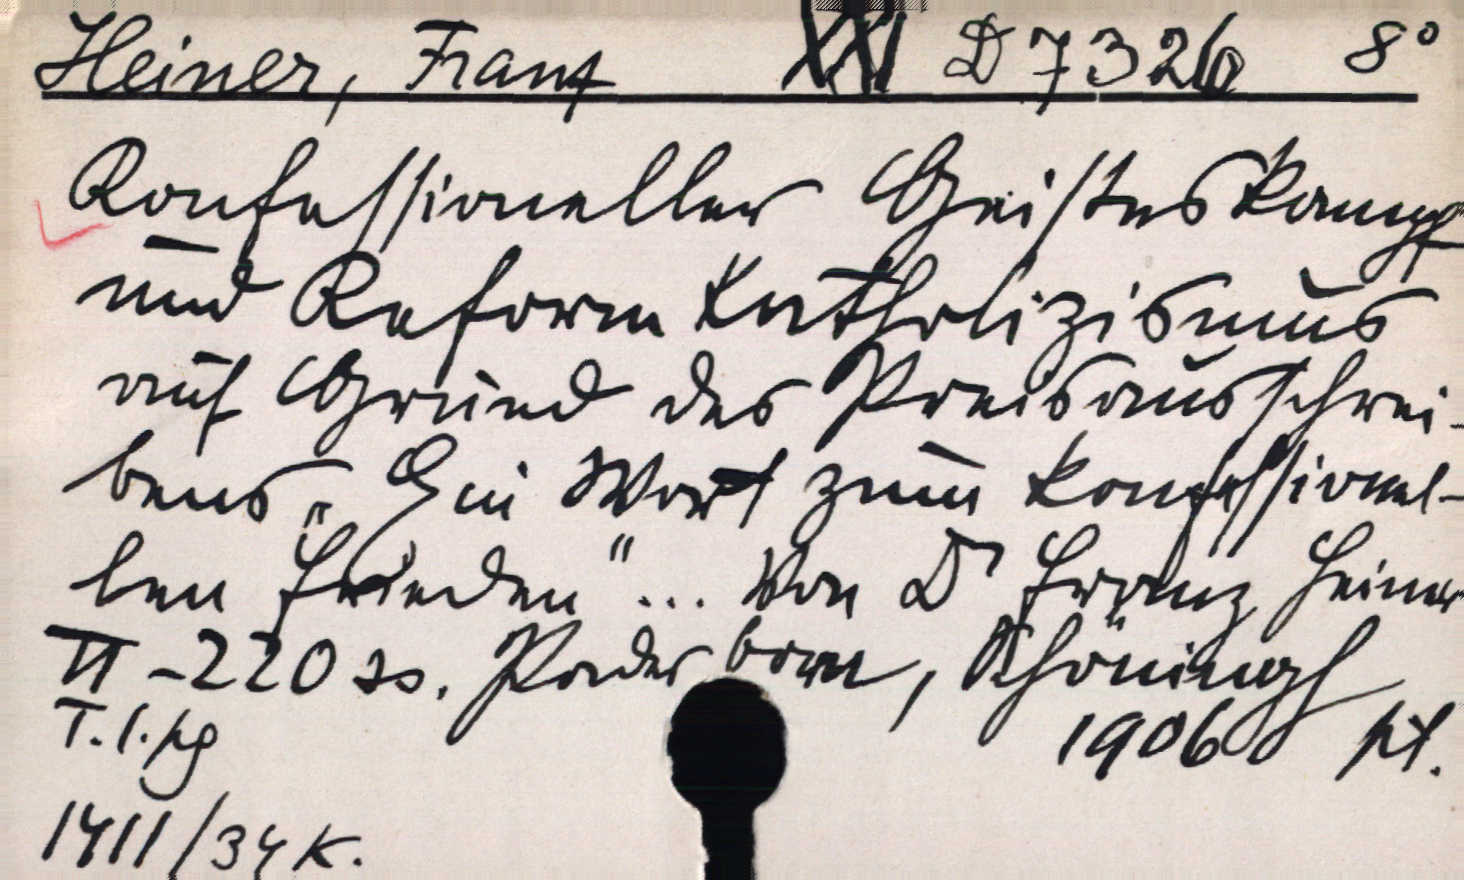 Heiner, Franz XXI D 732b 8°
Konfessioneller Geisteskampf
und Reformkatholizismus
auf Grund des Preisausschrei-
bens „Ein Wort zum konfessionel-
len Frieden“... Von Dr Franz Heiner
II - 220 ss. Paderborn, Schöningh
T. l. pg 1906 pt.
1411/34 K.